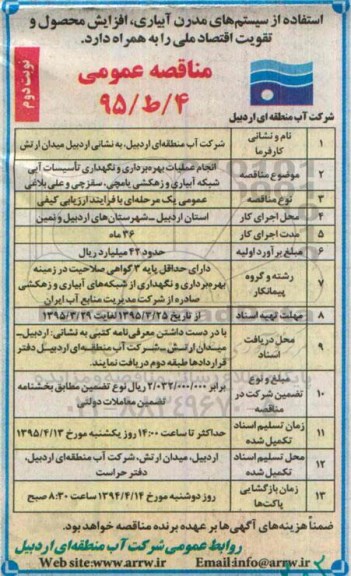 استفاده از سیستم‌های مدرن آبیاری، افزایش محصول و
تقویت اقتصاد ملی را به همراه دارد.
نوبت دوم
مناقصه عمومی
۹۵/ط/۴
شرکت آب منطقه‌ای اردبیل
۱ نام و نشانی کارفرما شرکت آب منطقه‌ای اردبیل، به نشانی اردبیل میدان ارتش
۲ موضوع مناقصه انجام عملیات بهره‌برداری و نگهداری تأسیسات آبی
شبکه آبیاری و زهکشی یامچی، سقزچی و علی بلاغی
۳ نوع مناقصه عمومی یک مرحله‌ای با فرایند ارزیابی کیفی
۴ محل اجرای کار استان اردبیل ــ شهرستان‌های اردبیل و نمین
۵ مدت اجرای کار ۳۶ ماه
۶ مبلغ برآورد اولیه حدود ۴۲ میلیارد ریال
۷ رشته و گروه پیمانکار دارای حداقل پایه ۳ گواهی صلاحیت در زمینه
بهره‌برداری و نگهداری از شبکه‌های آبیاری و زهکشی
صادره از شرکت مدیریت منابع آب ایران
۸ مهلت تهیه اسناد از تاریخ ۱۳۹۵/۳/۲۵ لغایت ۱۳۹۵/۳/۲۹
۹ محل دریافت اسناد با در دست داشتن معرفی‌نامه کتبی به نشانی: اردبیل ــ
میدان ارتش ــ شرکت آب منطقه‌ای اردبیل دفتر
قراردادها طبقه دوم دریافت نمایند.
۱۰ مبلغ و نوع تضمین شرکت در مناقصه برابر ۲/۰۳۲/۰۰۰/۰۰۰ ریال نوع تضمین مطابق بخشنامه
تضمین معاملات دولتی
۱۱ زمان تسلیم اسناد تکمیل شده حداکثر تا ساعت ۱۴:۰۰ روز یکشنبه مورخ ۱۳۹۵/۴/۱۳
۱۲ محل تسلیم اسناد تکمیل شده اردبیل، میدان ارتش، شرکت آب منطقه‌ای اردبیل،
دفتر حراست
۱۳ زمان بازگشایی پاکت‌ها روز دوشنبه مورخ ۱۳۹۴/۴/۱۴ ساعت ۸:۳۰ صبح
ضمناً هزینه‌های آگهی‌ها بر عهده برنده مناقصه خواهد بود.
روابط عمومی شرکت آب منطقه‌ای اردبیل
Web site:www.arrw.ir Email:info@arrw.ir